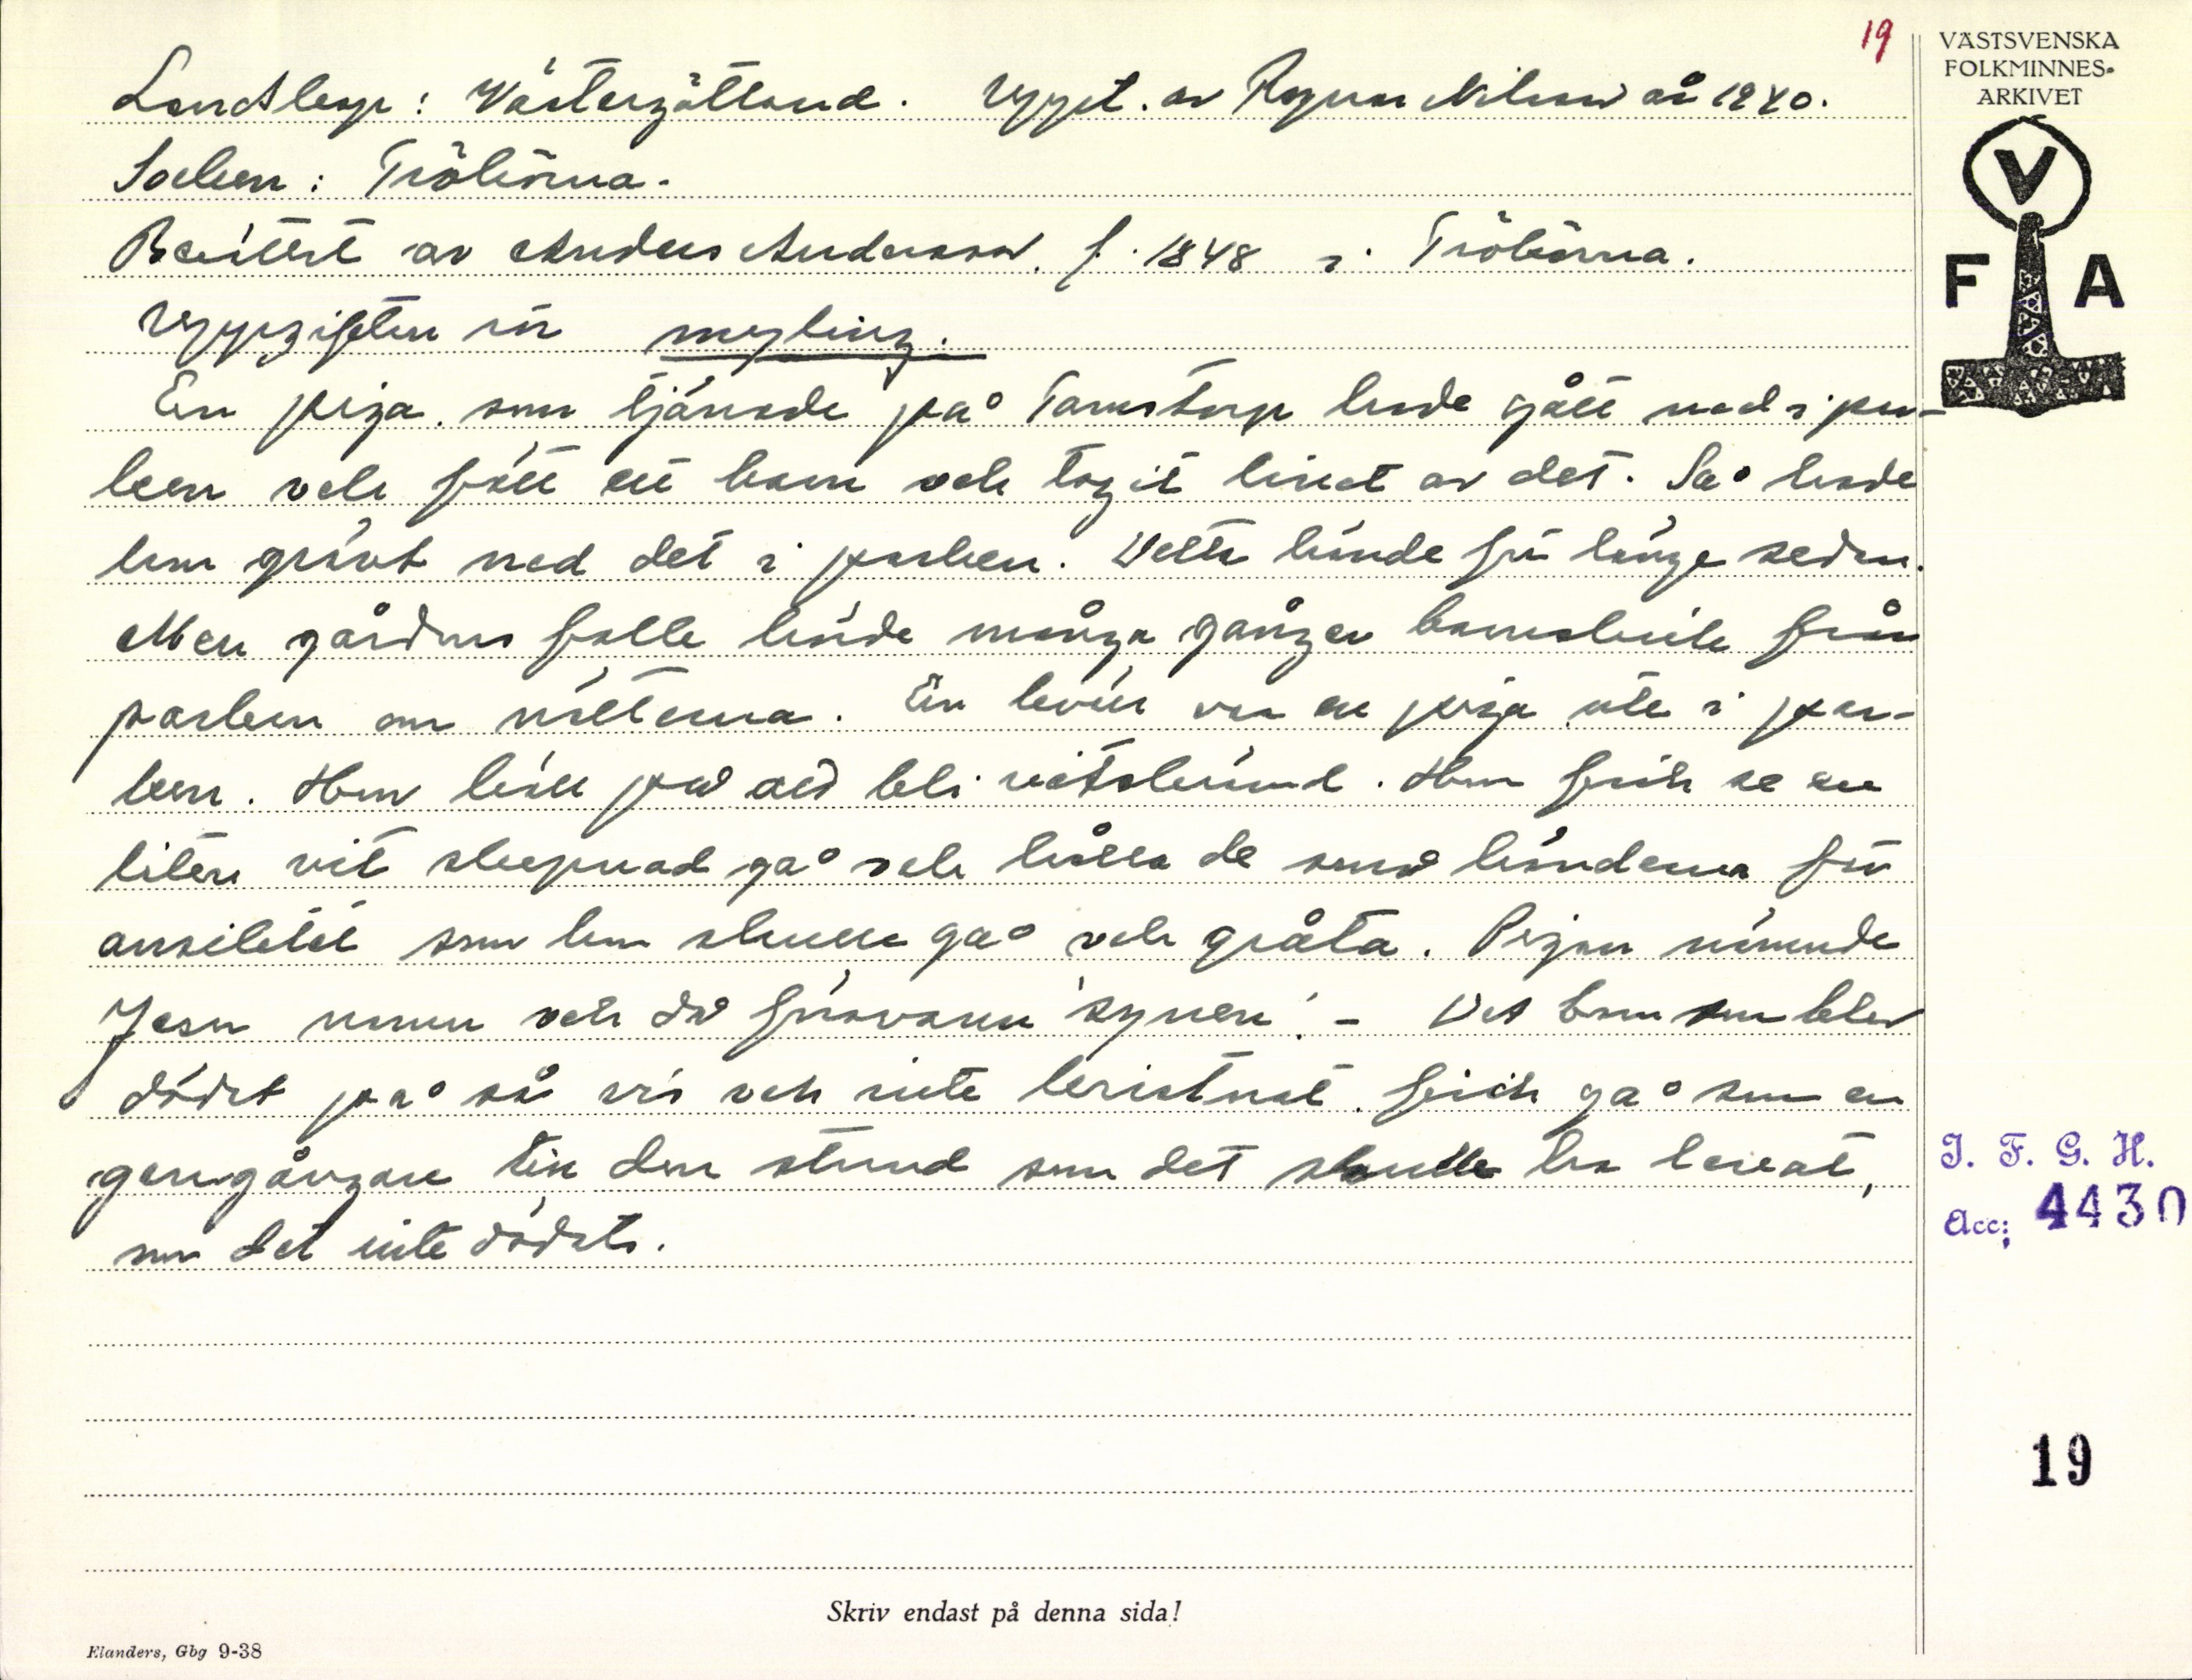 19
VÄSTSVENSKA
FOLKMINNES-
ARKIVET
V
F A
Landskap: Västergötland. Uppt. av Ragnar Nilsson år 1940.
Socken: Trökörna.
Berättat av Anders Andersson. f. 1848 i Trökörna.
Uppgiften rör myling.
En piga som tjänade på Tamstorp hade gått ned i par-
ken och fått ett barn och tagit livet av det. Så hade
hon grävt ned det i parken. Detta hände för länge sedan.
Men gårdens folk hörde många gånger barnskrik från
parken om nätterna. En kväll var en piga ute i par-
ken. Hon höll på att bli vettskrämd. Hon fick se en
liten vit skepnad gå och hålla de små händerna för
ansiktet som hon skulle gå och gråta. Pigan nämnde
Jesu namn och då försvann synen! - Det barn som blev
dödat på så vis och inte kristnat fick gå som en
gengångare till den stund som det skulle ha levat,
om det inte dödats.
I. F. G. H.
Acc; 4430
19
Skriv endast på denna sida!
Elanders, Gbg 9-38